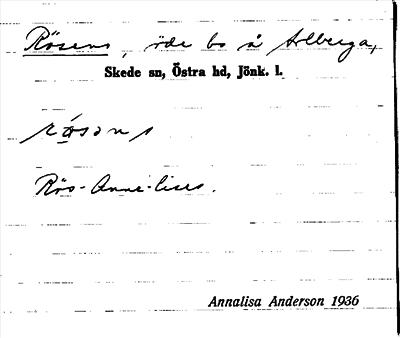 Rösens, öde bo å Arlberga,
Skede sn, Östra hd, Jönk. l.
rǿsəns
Rös-Anne-Lises.
Annalisa Anderson 1936